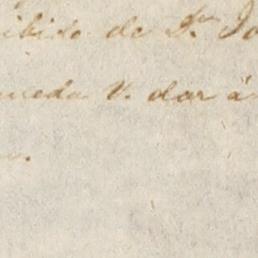 ibido de Sr. Jo
ueda V. dar á